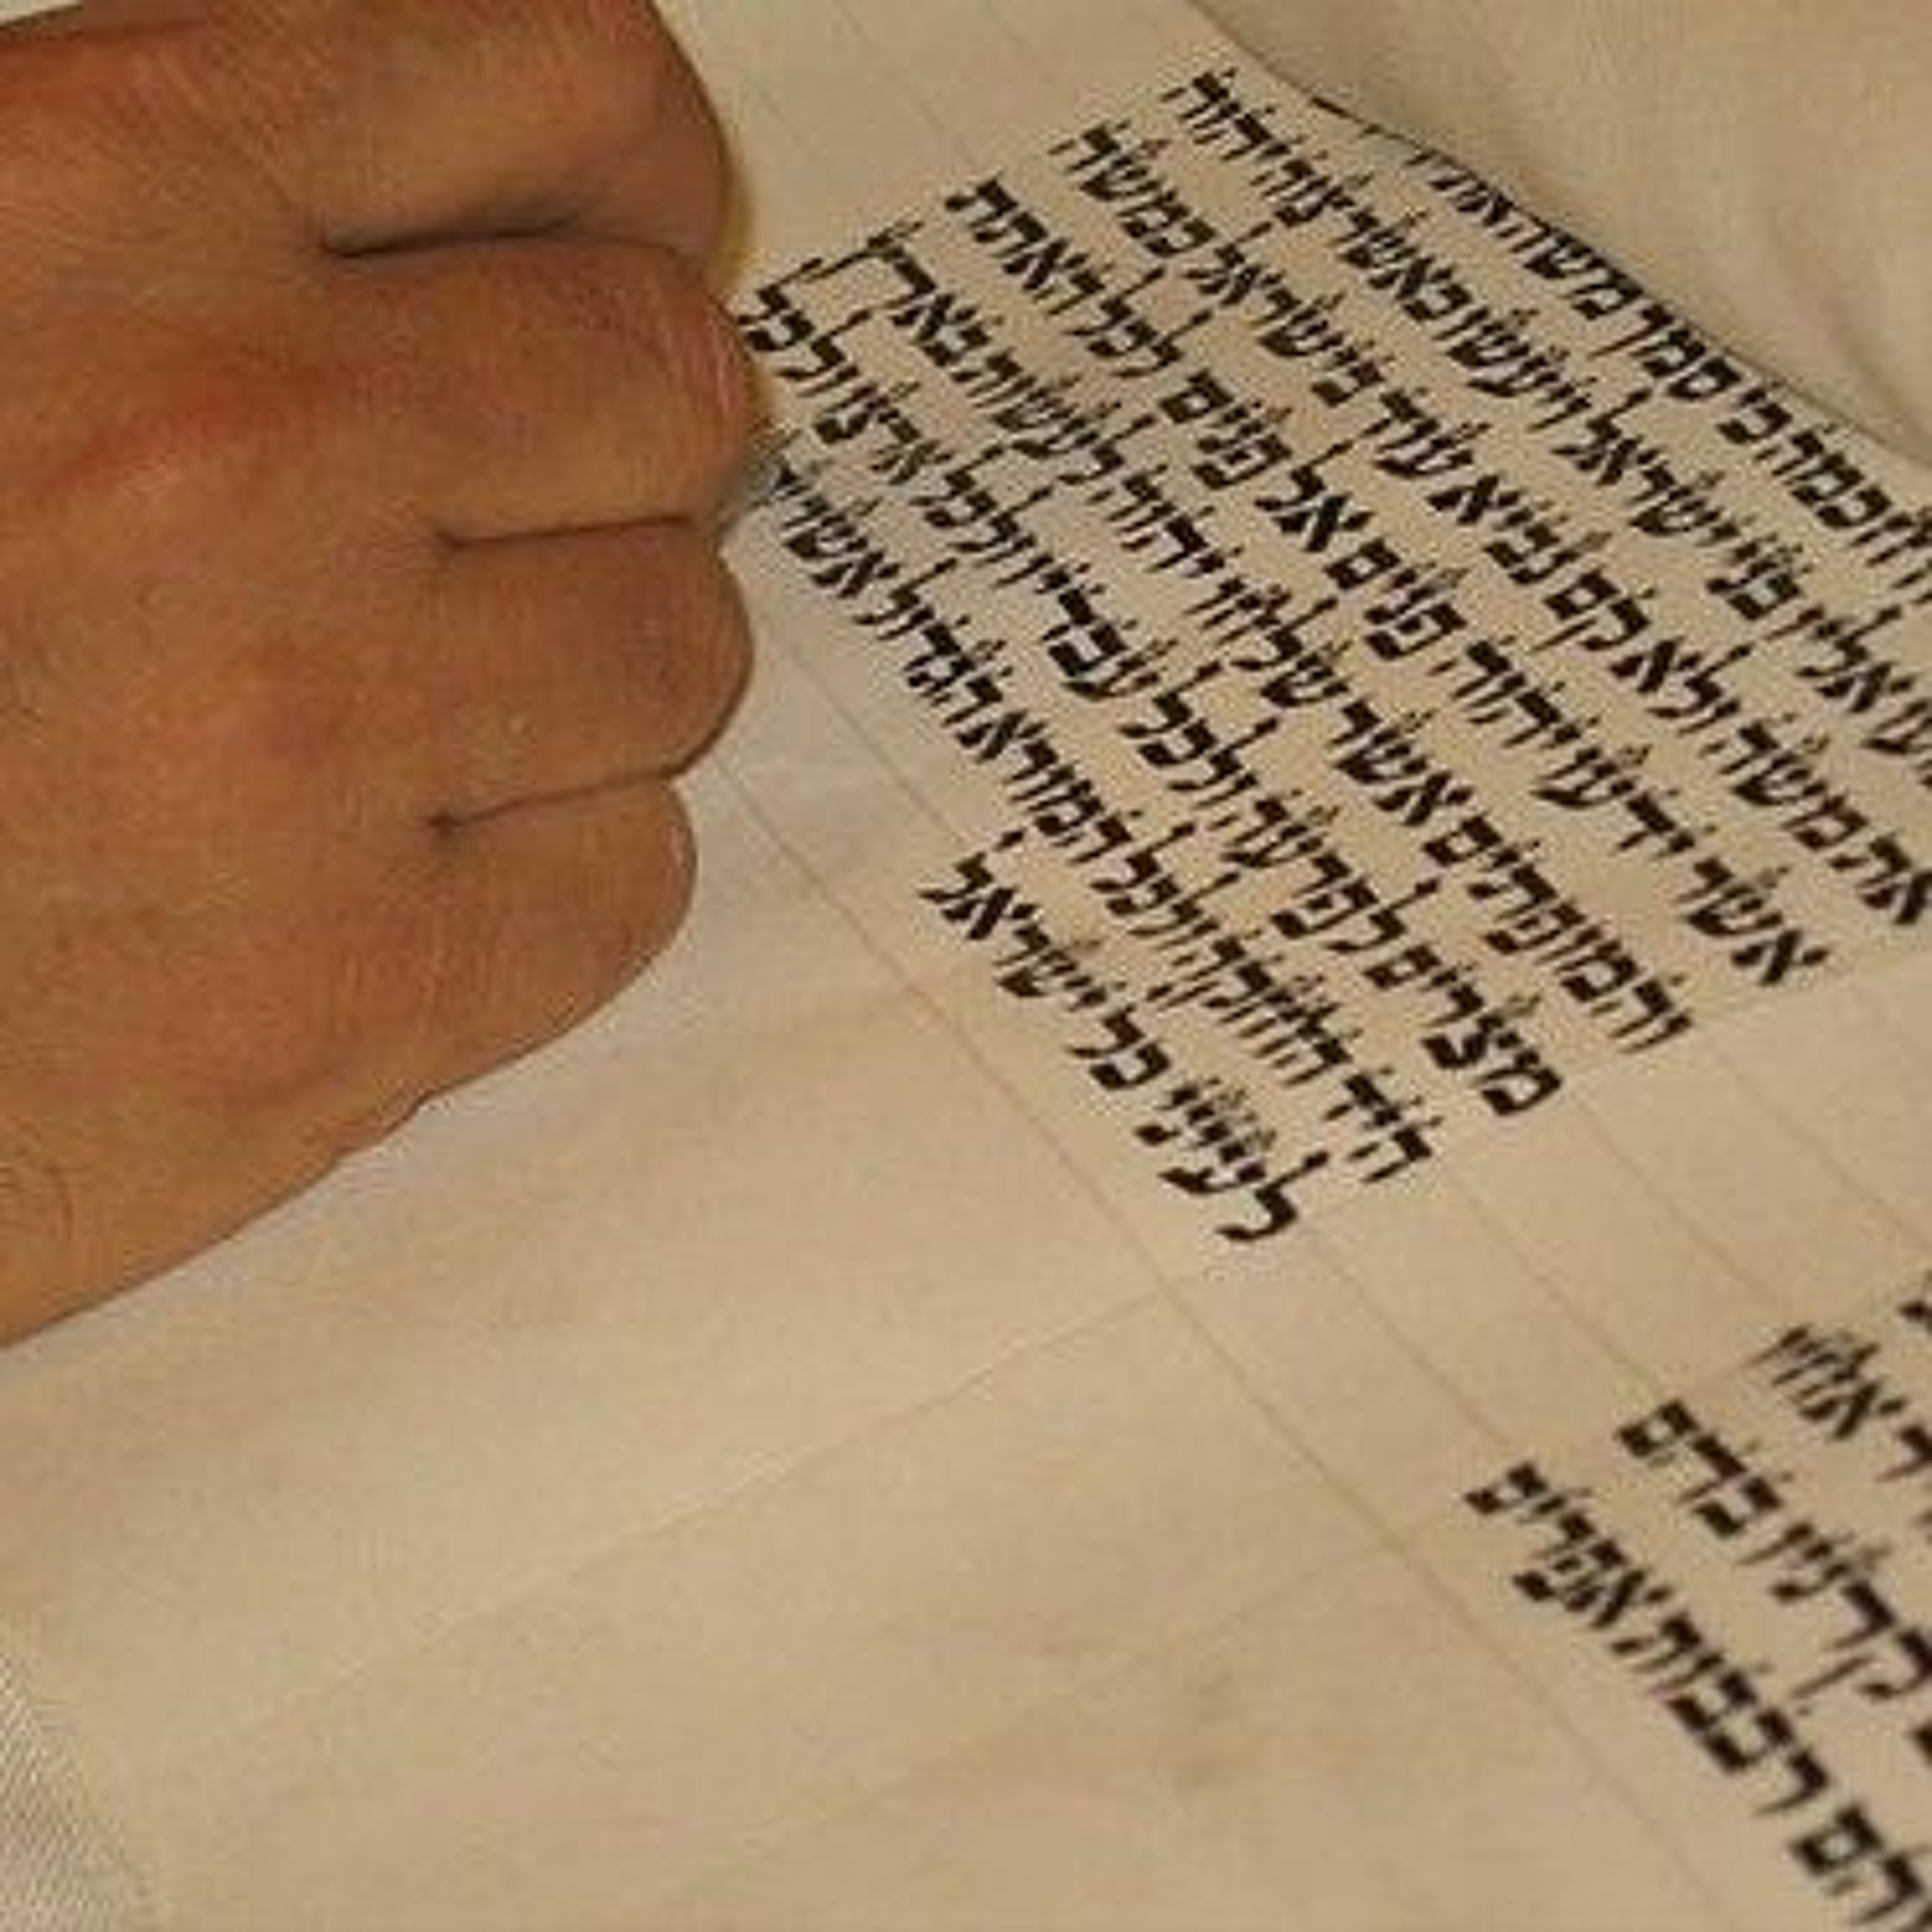 חכמה כי סמך משה
אליו בני ישראל ויעשו כאשר צוה יהוה
את משה ולא קם נביא עוד בישראל כמשה
אשר ידעו יהוה פנים אל פנים לכל האתת
והמופתים אשר שלחו יהוה לעשות בארץ
מצרים לפרעה ולכל עבדיו ולכל ארצו ולכל
היד החזקה ולכל המורא הגדול אשר
לעיני כל ישראל
קרניו בהם
הם רבבות אפרים